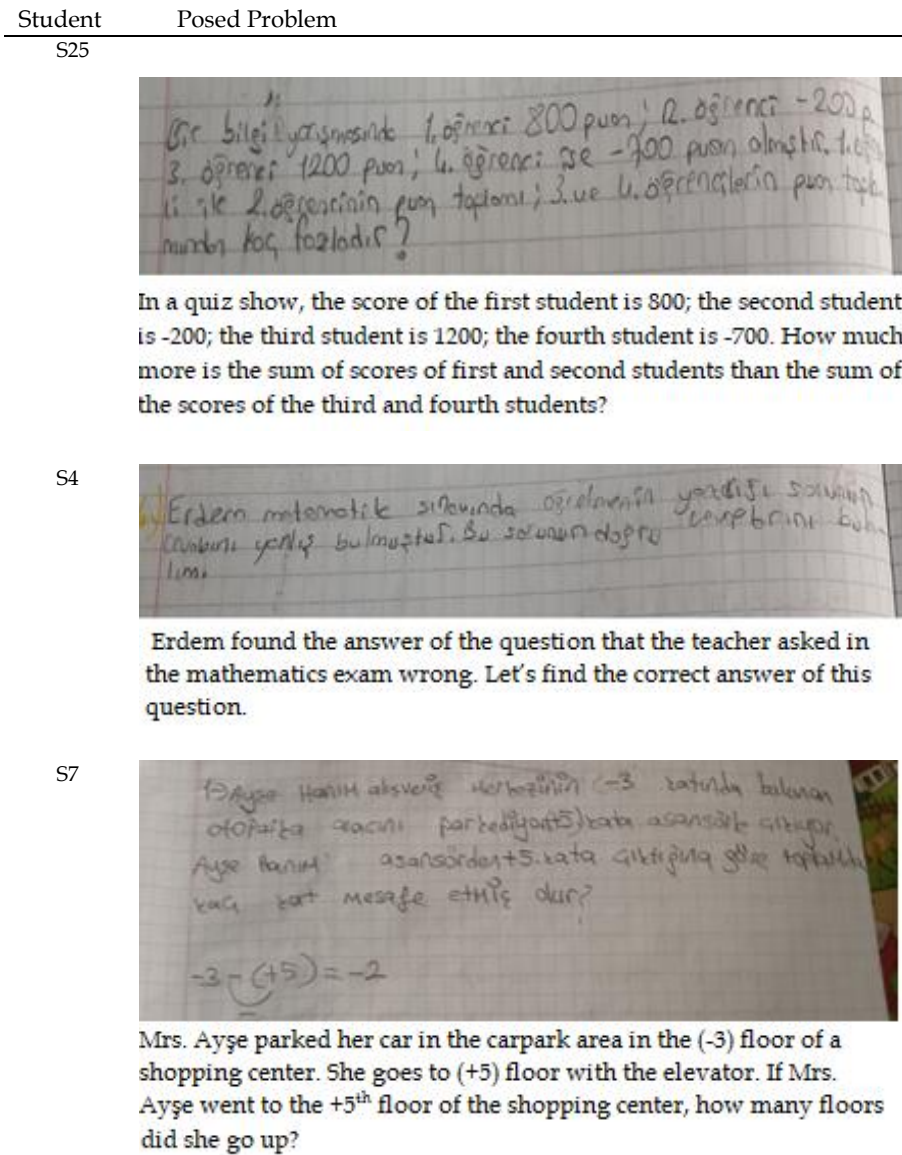 Student Posed Problem
S25
Bir bilgi yarışmasında 1. öğrenci 800 puan; 2. öğrenci -200 p
3. öğrenci 1200 puan; 4. öğrenci ise -700 puan almıştır. 1.
ile 2. öğrencinin puan toplamı; 3. ve 4. öğrencilerin puan topla
mından kaç fazladır?
In a quiz show, the score of the first student is 800; the second student
is -200; the third student is 1200; the fourth student is -700. How much
more is the sum of scores of first and second students than the sum of
the scores of the third and fourth students?
S4
Erdem matematik sınavında öğretmenin yazdığı sorunun
cevabını yanlış bulmuştur. Bu sorunun doğru cevabını bula
lım.
Erdem found the answer of the question that the teacher asked in
the mathematics exam wrong. Let's find the correct answer of this
question.
S7
1-) Ayşe Hanım alışveriş merkezinin (-3 katında bulunan
otoparka aracını parkediyor (+5) kata asansörle çıkıyor.
Ayşe Hanım asansörden +5. kata çıktığına göre toplamda
kaç kat mesafe etmiş olur?
-3 - (+5) = -2
Mrs. Ayşe parked her car in the carpark area in the (-3) floor of a
shopping center. She goes to (+5) floor with the elevator. If Mrs.
Ayşe went to the +5th floor of the shopping center, how many floors
did she go up?